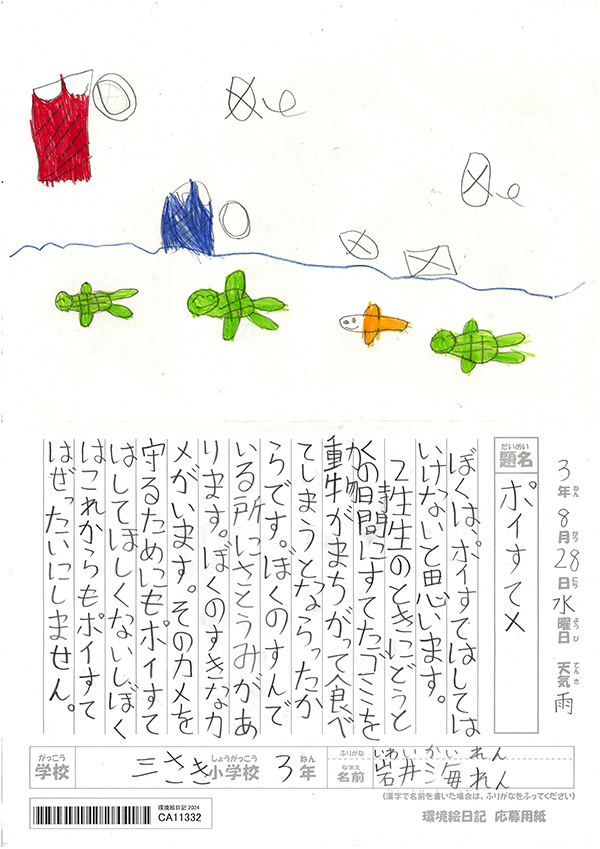 3年ねん8月がつ28日にち水曜日ようび 天気てんき雨
題名だいめい ポイすてメ
ぼくは、ポイすてはしては
いけないと思います。
2年生のときにどうと
くの時間にすてたゴミを
動物がまちがって食べ
てしまうとならったか
らです。ぼくのすんで
いる所にさとうみがあ
ります。ぼくのすきなカ
メがいます。そのカメを
守るためにもポイすて
はしてほしくないしぼく
はこれからもポイすて
はぜったいにしません。
がっこう しょうがっこう ねん
学校 三さき小学校 3年
ふりがな いわい かい れん
なまえ
名前 岩井海れん
(漢字で名前を書いた場合は、ふりがなをふってください)
環境絵日記 2024
CA11332
環境絵日記 応募用紙